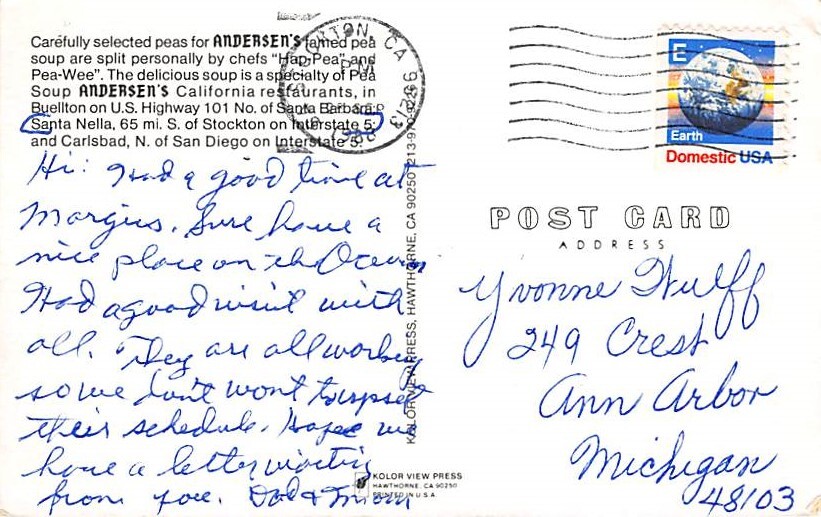 Carefully selected peas for ANDERSEN'S famed pea
soup are split personally by chefs "Hap-Pea" and
Pea-Wee". The delicious soup is a specialty of Pea
Soup ANDERSEN'S California restaurants, in
Buellton on U.S. Highway 101 No. of Santa Barbara;
Santa Nella, 65 mi. S. of Stockton on Interstate 5;
and Carlsbad, N. of San Diego on Interstate 5.
Hi: Had a good time at
Margies. Sure have a
nice place on the Ocean
Had a good visit with
all. They are all working
so we don't wont to upset
their schedule. Hope we
have a letter waiting
from you. Dad & Mom
KOLOR VIEW PRESS, HAWTHORNE, CA 90250
KOLOR VIEW PRESS
HAWTHORNE, CA 90250
PRINTED IN U.S.A.
STOCKTON, CA
PM
SEP
1988
E
Earth
Domestic USA
POST CARD
ADDRESS
Yvonne Wulff
249 Crest
Ann Arbor
Michigan
48103